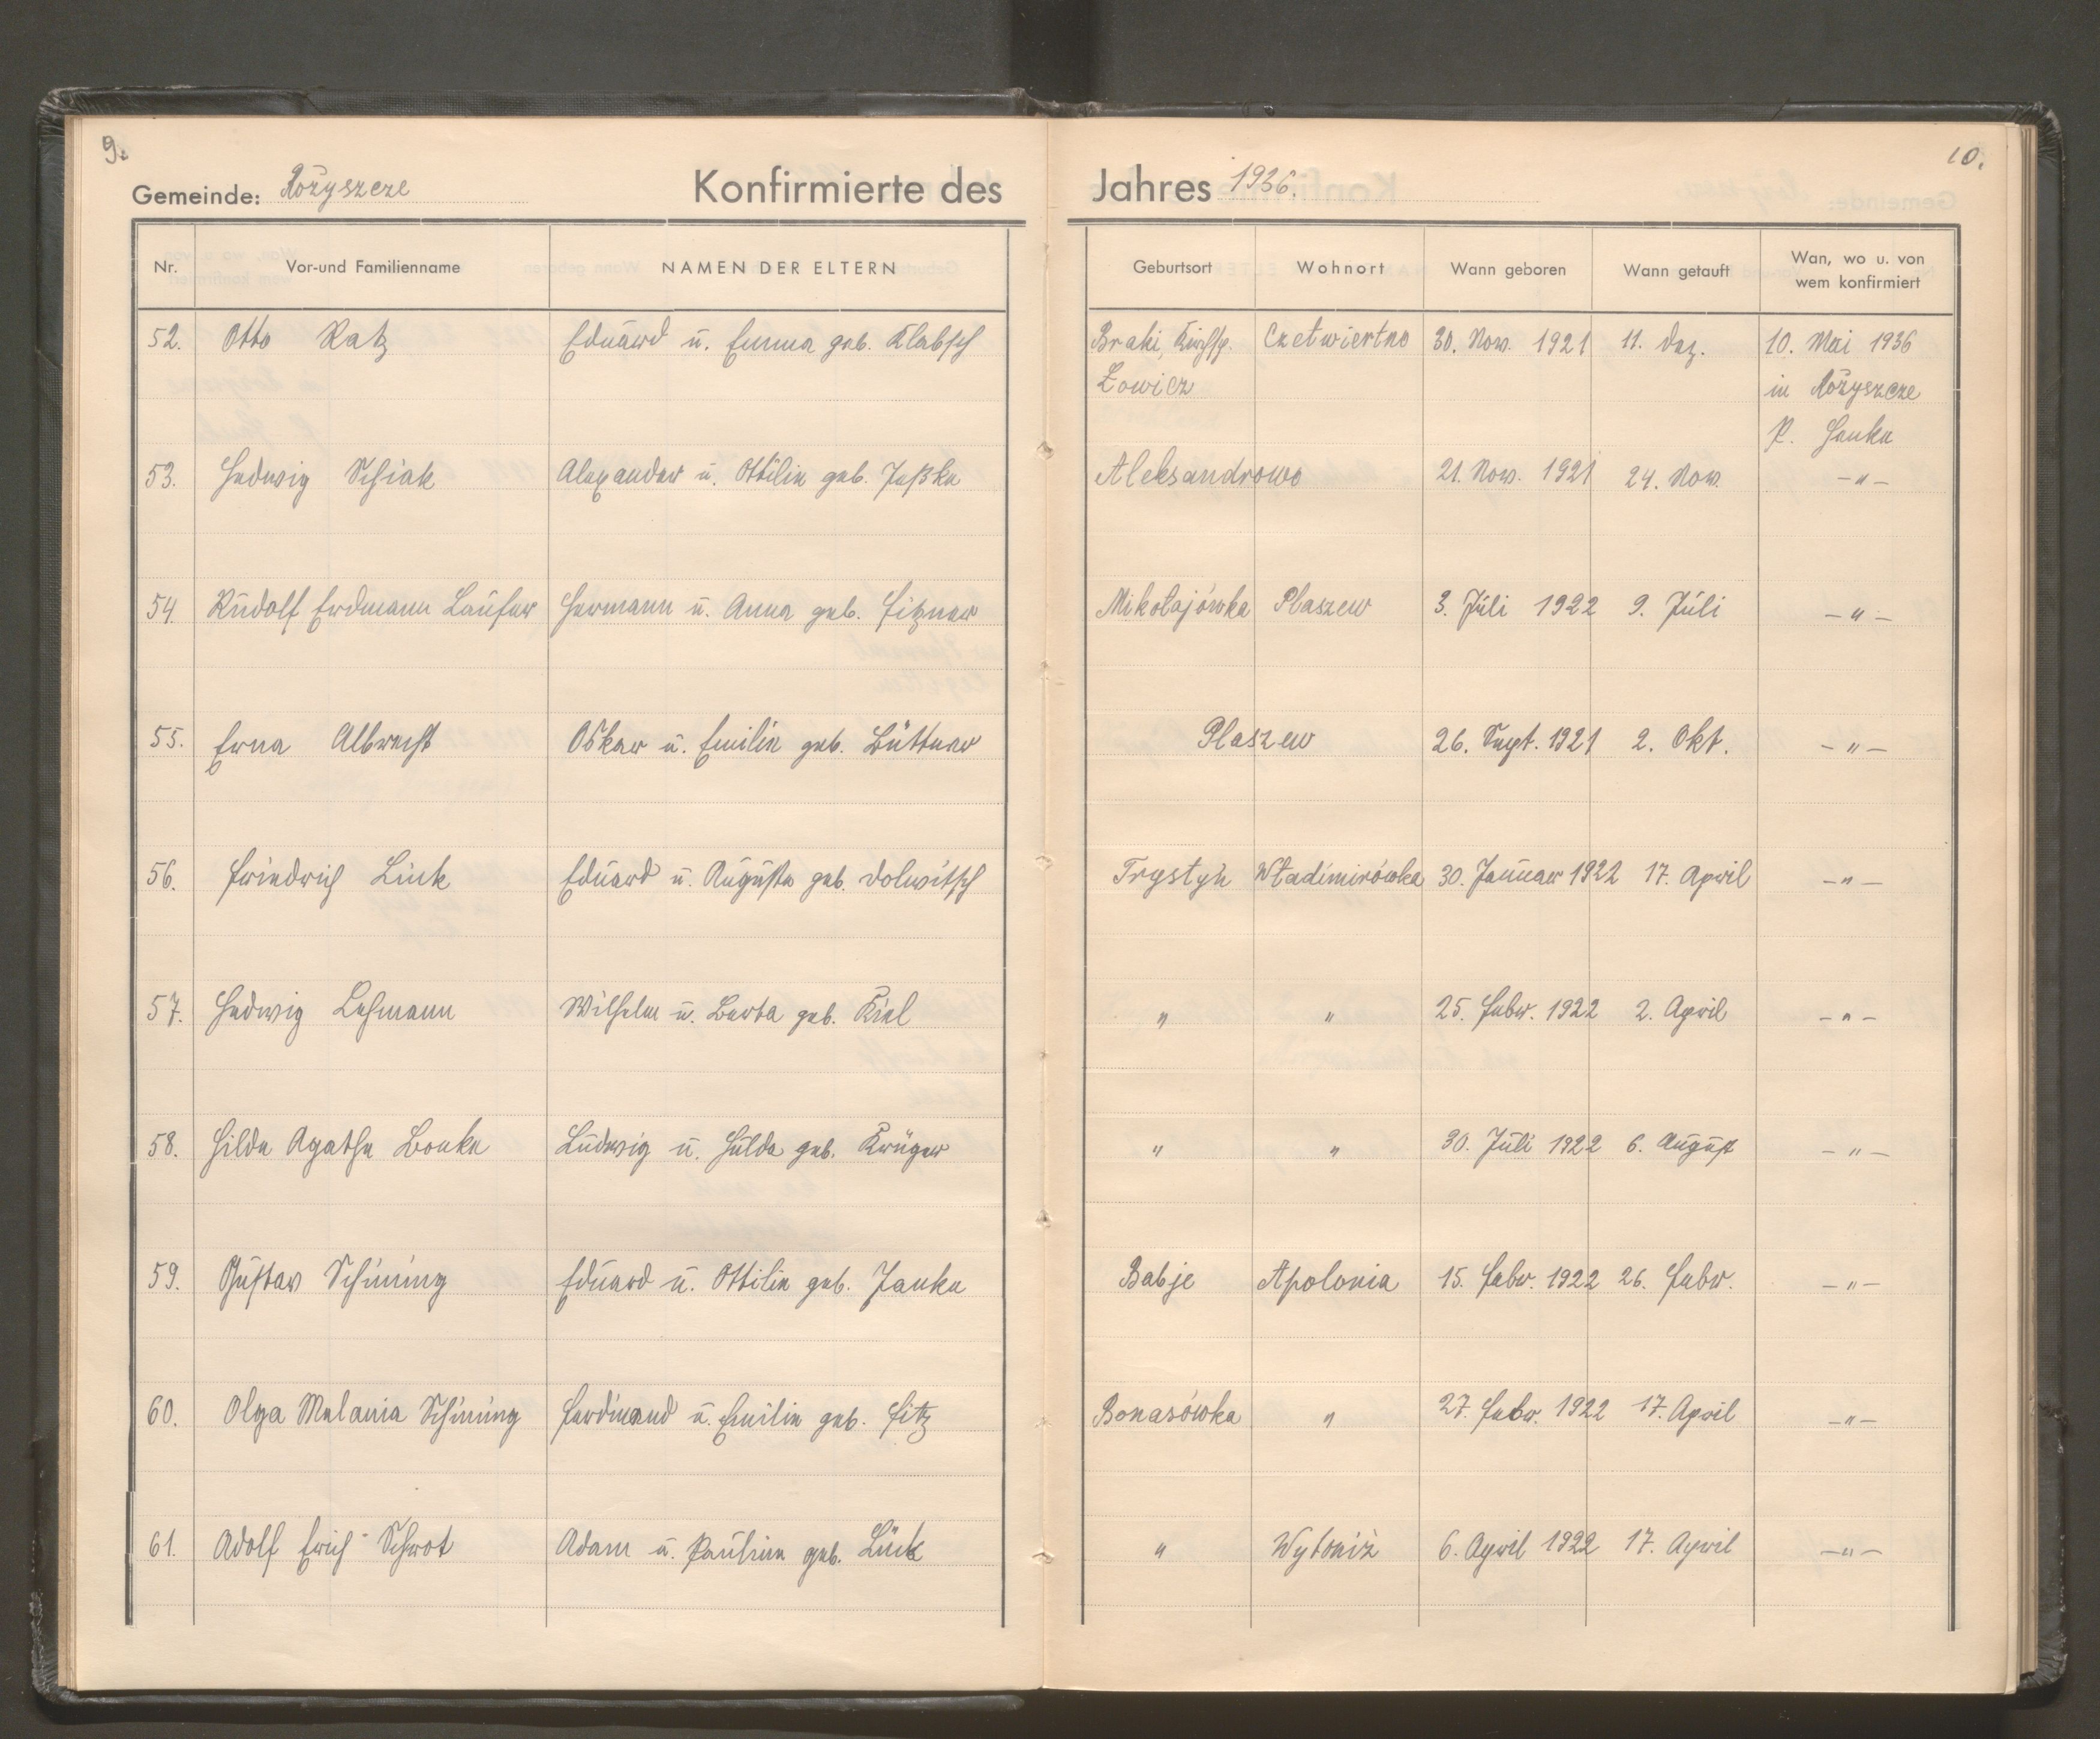 9.
Gemeinde: Rożyszcze Konfirmierte des
Nr. Vor-und Familienname NAMEN DER ELTERN
52. Otto Ratz Eduard u. Emma geb. Klabsch
53. Hedwig Schiak Alexander u. Ottilie geb. Jeßke
54. Rudolf Erdmann Läufer Hermann u. Anna geb. Fitzner
55. Erna Albrecht Oskar u. Emilie geb. Büttner
56. Friedrich Link Eduard u. Auguste geb. Dolwitsch
57. Hedwig Lehmann Wilhelm u. Berta geb. Kiel
58. Hilde Agathe Bonke Ludwig u. Hulda geb. Krüger
59. Gustav Schining Eduard u. Ottilie geb. Janke
60. Olga Melania Schining Ferdinand u. Emilie geb. Fitz
61. Adolf Erich Schrot Adam u. Pauline geb. Lück
10.
Jahres 1936.
Geburtsort Wohnort Wann geboren Wann getauft Wan, wo u. von
wem konfirmiert
Braki, Kirchsp. Czetwiertno 30. Nov. 1921 11. Dez. 10. Mai 1936
Łowicz in Rożyszcze
P. Henke
Aleksandrowo 21. Nov. 1921 24. Nov. -"-
Mikołajówka Plaszew 3. Juli 1922 9. Juli -"-
Plaszew 26. Sept. 1921 2. Okt. -"-
Trystyń Władimirówka 30. Januar 1922 17. April -"-
" " 25. Febr. 1922 2. April -"-
" " 30. Juli 1922 6. August -"-
Babje Apolonia 15. Febr. 1922 26. Febr. -"-
Bonasówka " 27. Febr. 1922 17. April -"-
" Wytoniż 6. April 1922 17. April -"-